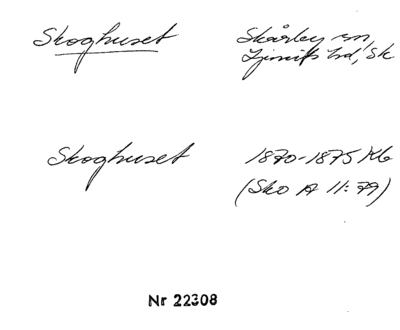 Skoghuset Skårby sn,
Ljunits hd, Sk
Skoghuset 1870-1875 Kb
(Sko A 11:79)
Nr 22308